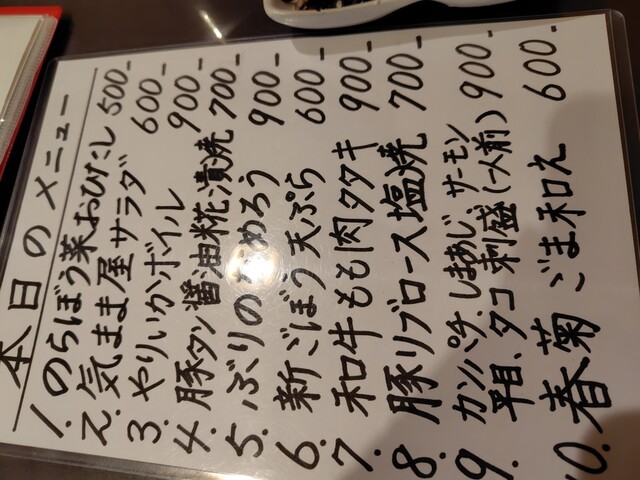 本日のメニュー
1. のらぼう菜おひたし 500-
2. 気まま屋サラダ 600-
3. やりいかボイル 900-
4. 豚タン醤油糀漬焼 700-
5. ぶりのなめろう 900-
6. 新ごぼう天ぷら 600-
7. 和牛もも肉タタキ 900-
8. 豚リブロース塩焼 700-
9. カンパチ、しまあじ、サーモン
平目、タコ 刺盛(一人前) 900-
10. 春菊ごま和え 600-